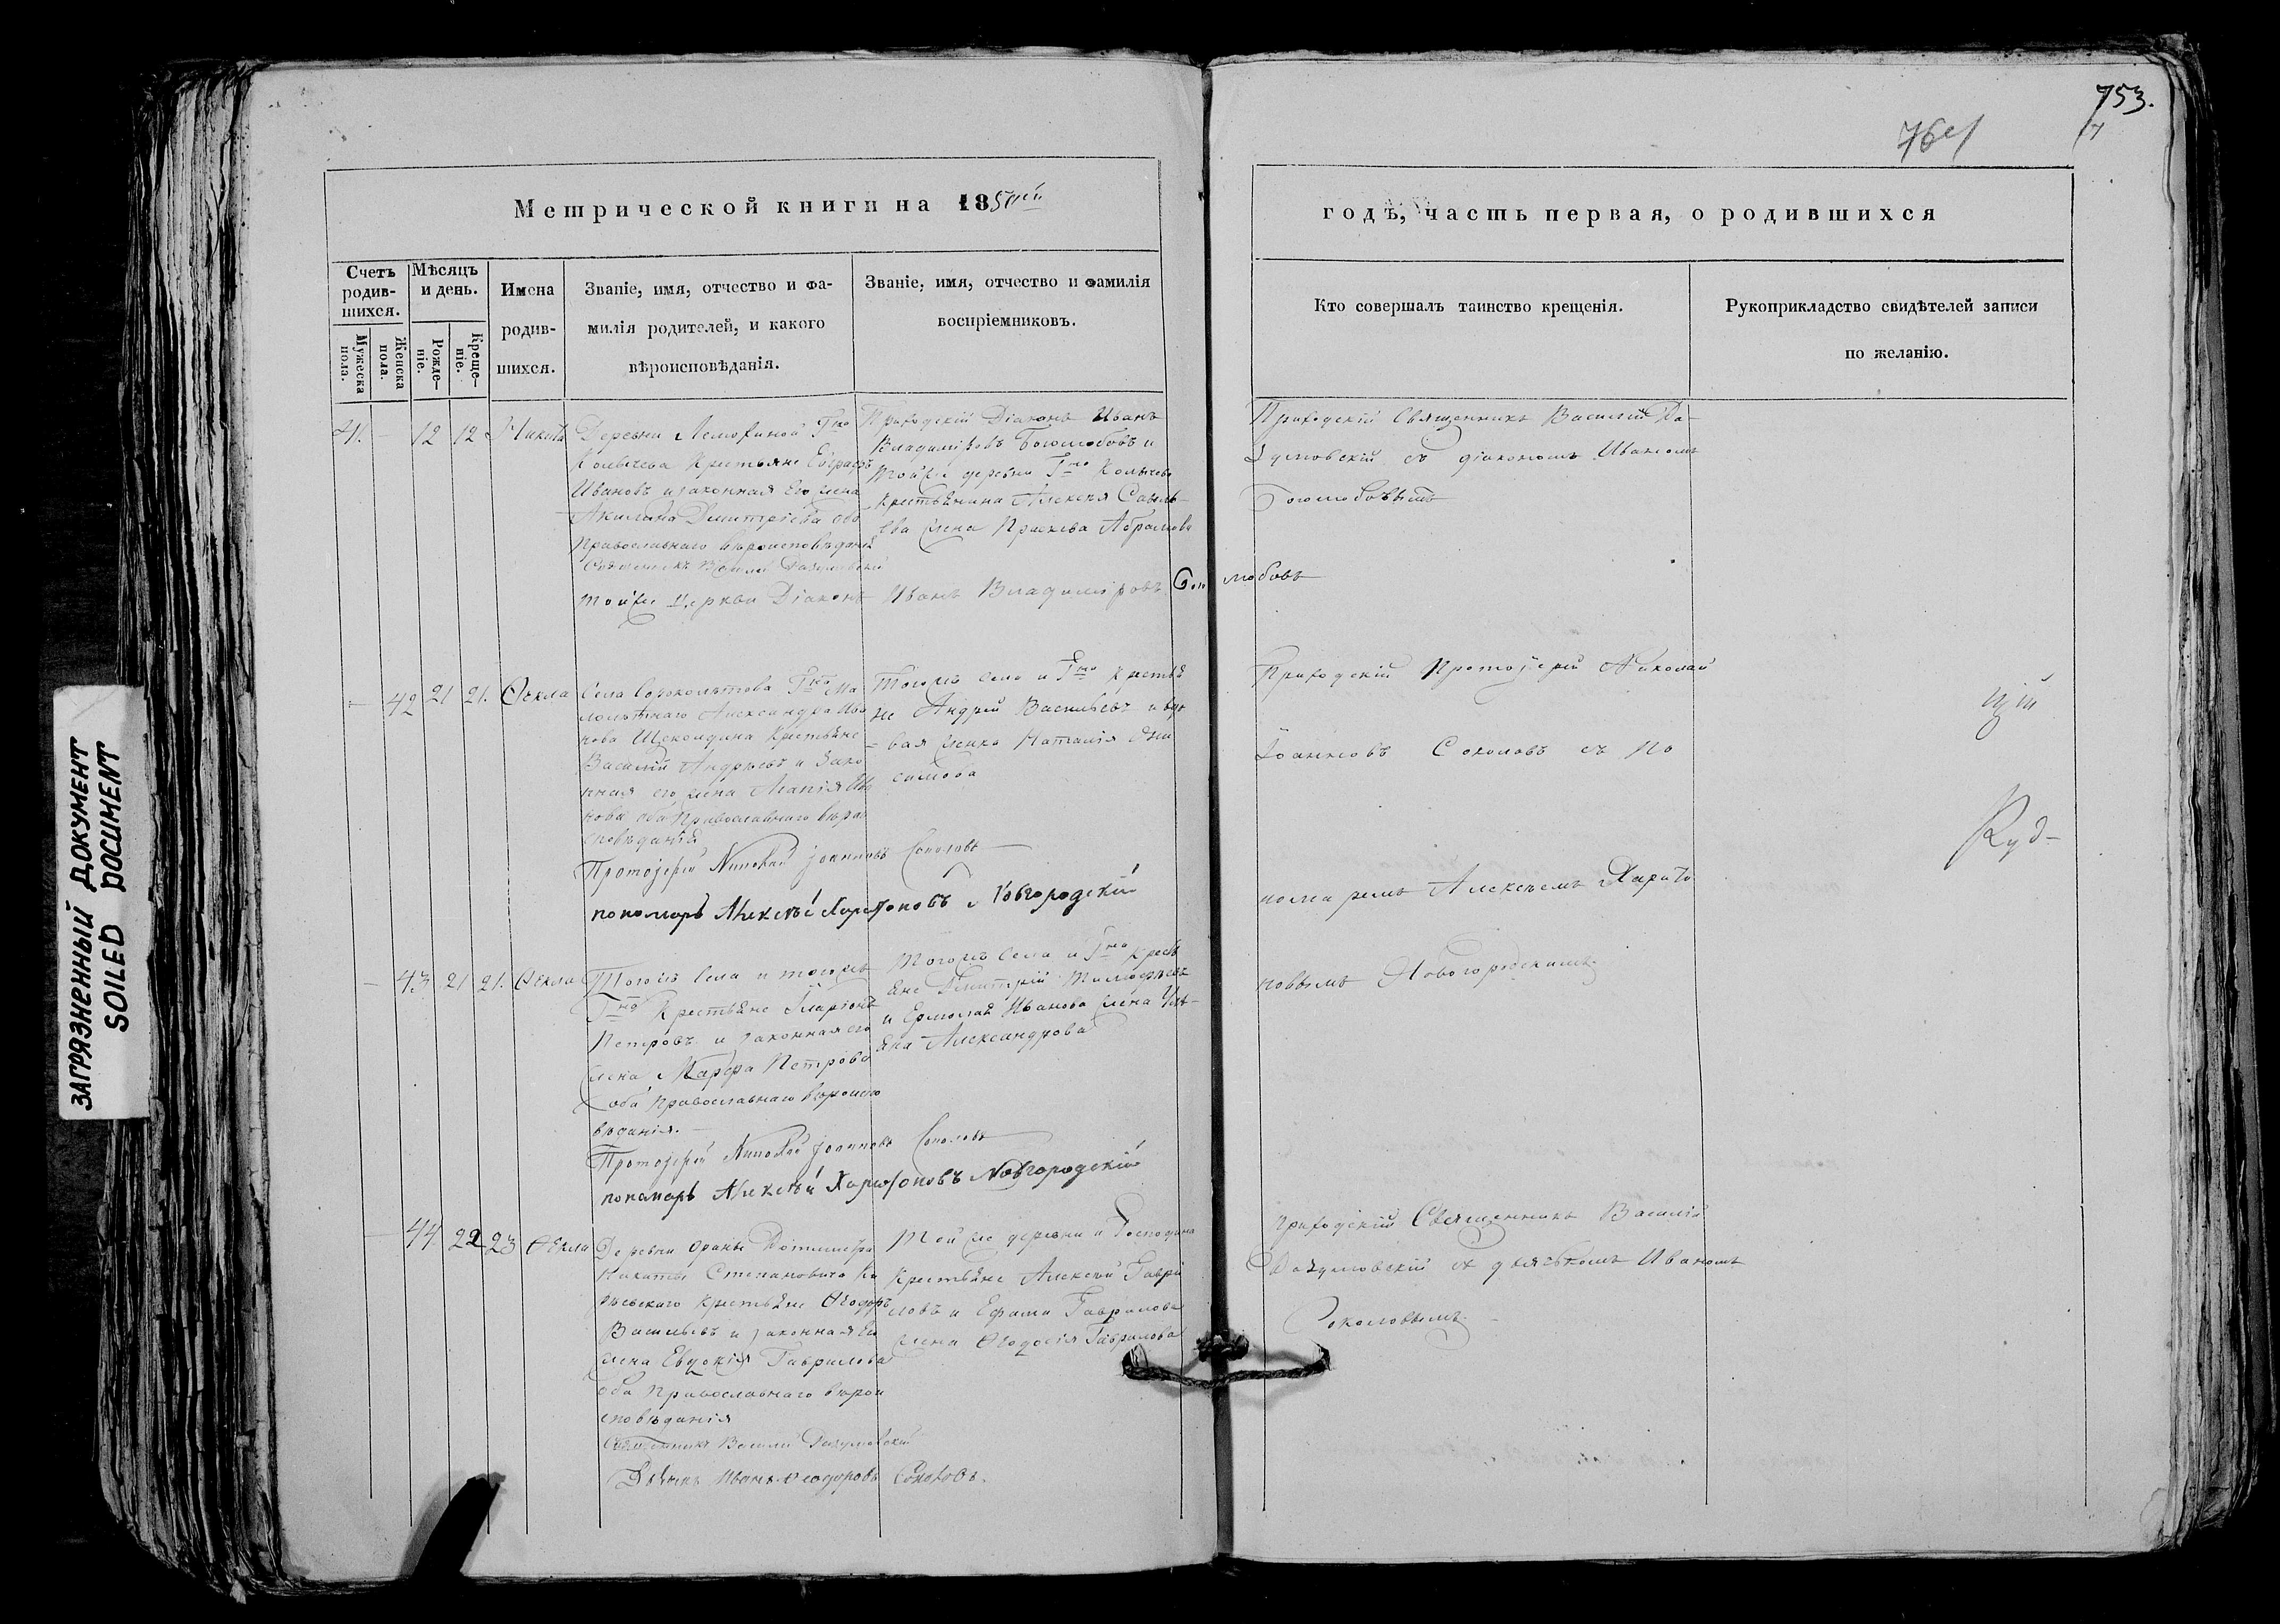 753.
Метрической книги на 1850й
годъ, часть первая, о родившихся
Счетъ родив-шихся.
Мужеска пола.
Женска пола.
Мѣсяцъ и день.
Рожде-ніе.
Креще-ніе.
Имена родив-шихся.
Званіе, имя, отчество и фа-
милія родителей, и какого
вѣроисповѣданія.
Званіе, имя, отчество и фамилія
воспріемниковъ.
Кто совершалъ таинство крещенія.
Рукоприкладство свидѣтелей записи
по желанію.
41. - 12 12 Никита
Деревни Гна
Колычева Крестьяне
Ивановъ и законная его жена
Димитріева оба
Православнаго вѣроисповѣданія
Священникъ Василій Разумовскій
тойже Церкви Діаконъ Иванъ Владиміровъ Боголюбовъ
Приходскій Діаконъ Иванъ
Владиміровъ Боголюбовъ и
тойже деревни Гна Колычева
Крестьянина Алексея Савель-
ева жена Праскева Абрамова
Приходскій Священникъ Василій Ра-
зумовскій съ діакономъ Иваномъ
Боголюбовымъ
- 42 21 21. Ѳекла
Села Гна Ма-
лолѣтнаго Александра Ива
нова Крестьяне
Василій Андреевъ и Зако
нная его жена Ива
нова оба Православнаго вѣрои
сповѣданія
Протоіерей Николай Іоанновъ Соколовъ
пономарь Алексѣй Харитоновъ Новгородскій
Тогожъ Села и Гна Крестья
не Андрей Васильевъ и вдо
вая женка Наталія Они
симова
Приходскій Протоіерей Николай
Іоанновъ Соколовъ съ по
номаремъ Алексѣемъ Харито
новымъ Новогородскимъ.
цій
Руд-
- 43 21 21. Ѳекла
Тогожъ Села и тогожъ
Гна Крестьяне Иларіонъ
Петровъ и законная его
жена Марфа Петрова
оба Православнаго вѣроиспо
вѣданія.
Протоіерей Николай Іоанновъ Соколовъ
пономарь Алексѣй Харитоновъ Новгородскій
Тогожъ Села и Гна Кресть
яне Димитрій Тимофѣевъ
и Ермолая Иванова жена Уль-
яна Александрова
- 44 22 23 Ѳекла
Деревни
Никиты Степановича
Крестьяне Ѳеодоръ
Васильевъ и законная его
жена Евдокія Гаврилова
оба Православнаго вѣрои
сповѣданія
Священникъ Василій Разумовскій
Дьячекъ Иванъ Ѳеодоровъ Соколовъ.
Той же деревни и Господина
Крестьяне Алексей Гаври
ловъ и Гаврилова
жена Ѳеодосія Гаврилова
Приходскій Священникъ Василій
Разумовскій съ дьячкомъ Иваномъ
Соколовымъ.
ЗАГРЯЗНЕННЫЙ ДОКУМЕНТ
SOILED DOCUMENT